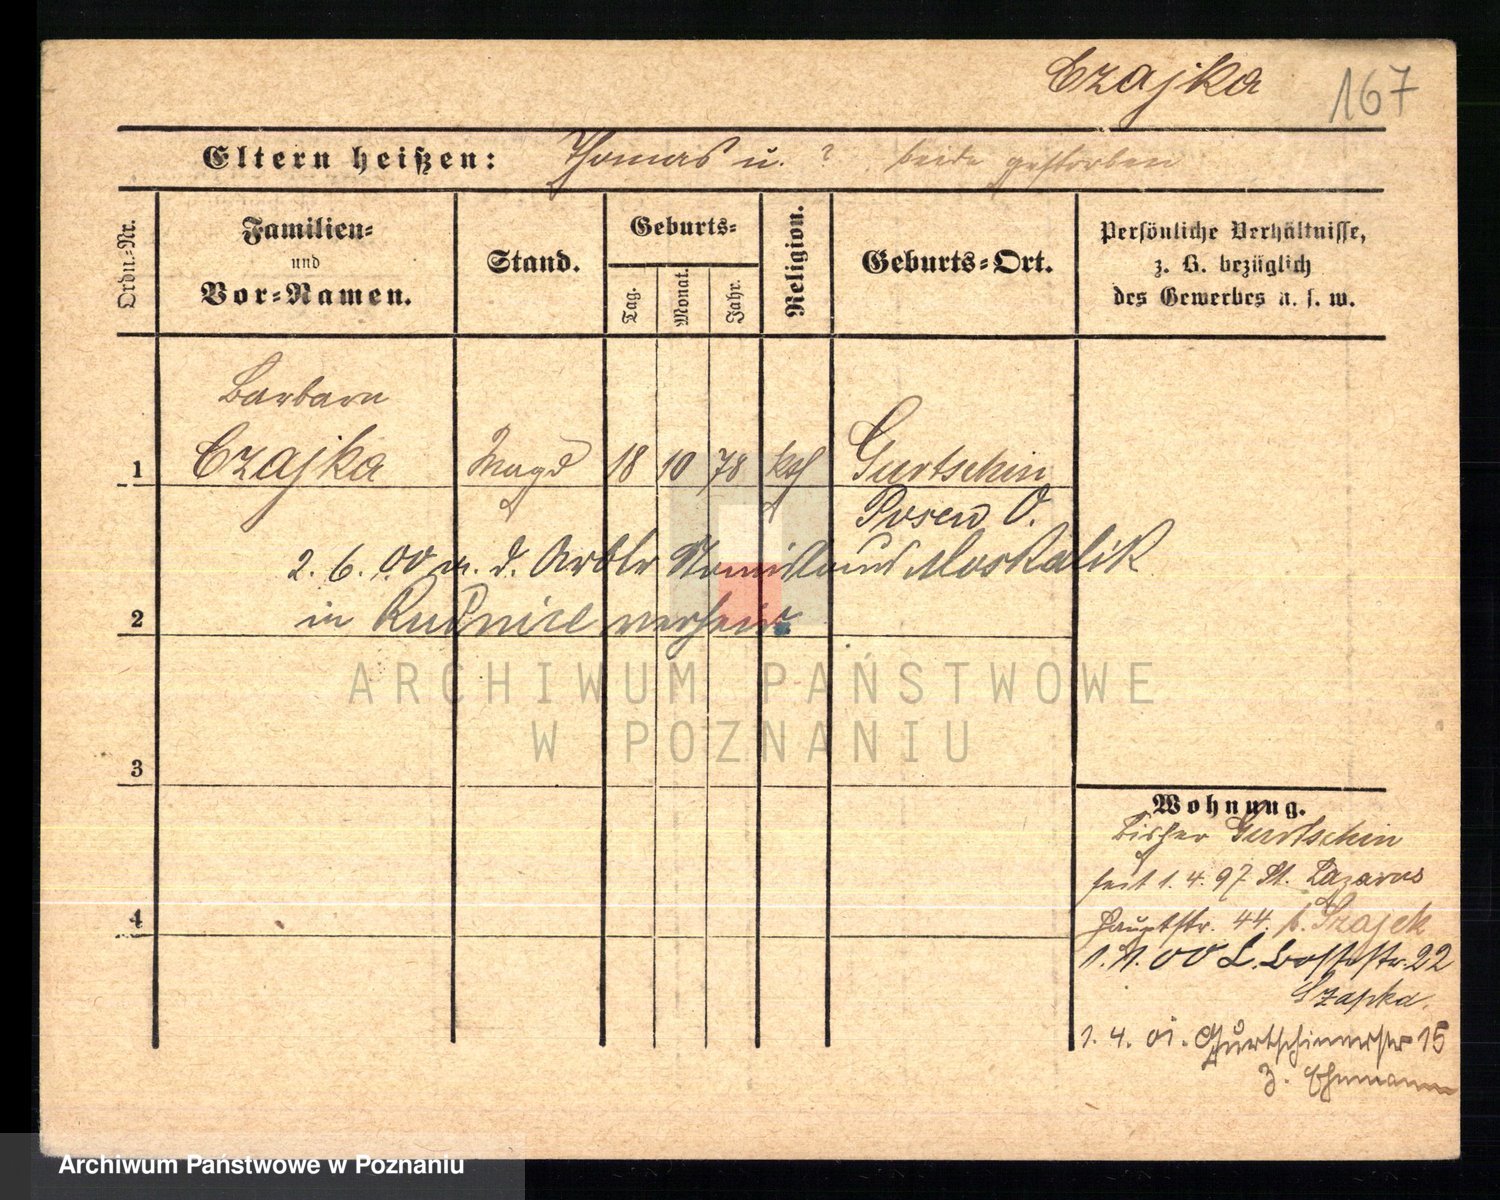 Czajka 167
Eltern heißen: Thomas u. ? beide gestorben
Ordn.-Nr.
Familien-
und
Vor-Namen.
Stand.
Geburts-
Tag.
Monat.
Jahr.
Religion.
Geburts-Ort.
Persönliche Verhältnisse,
z. B. bezüglich
des Gewerbes u. s. w.
Barbara
1 Czajka Magd 18 10 78 kth Gurtschin
Posen O.
2. 6. 00 m. d. Arbtr Stanislaus Moskalik
2 in Rudnice verheir.
ARCHIWUM PAŃSTWOWE
W POZNANIU
3
Wohnung.
bisher Gurtschin
seit 1. 4. 97 St. Lazarus
4 Hauptstr. 44. b.
1. 1. 00 L. 22
Czajka.
1. 4. 01. Gurtschinerstr 15
z. Ehemann
Archiwum Państwowe w Poznaniu